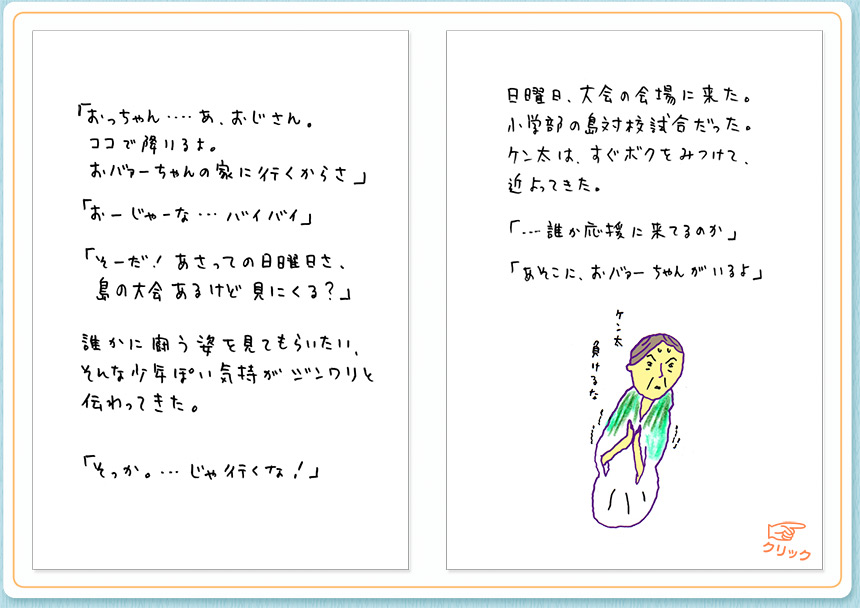 「おっちゃん‥‥あ、おじさん。
ココで降りるよ。
おバァーちゃんの家に行くからさ」
「おーじゃーな…バイバイ」
「そーだ！あさっての日曜日さ、
島の大会あるけど見にくる？」
誰かに闘う姿を見てもらいたい、
そんな少年ぽい気持がジンワリと
伝わってきた。
「そっか。…じゃ行くな！」
日曜日、大会の会場に来た。
小学部の島対校試合だった。
ケン太は、すぐボクをみつけて、
近よってきた。
「…誰か応援に来てるのか」
「あそこに、おバァーちゃんがいるよ」
ケン太
負けるな
クリック